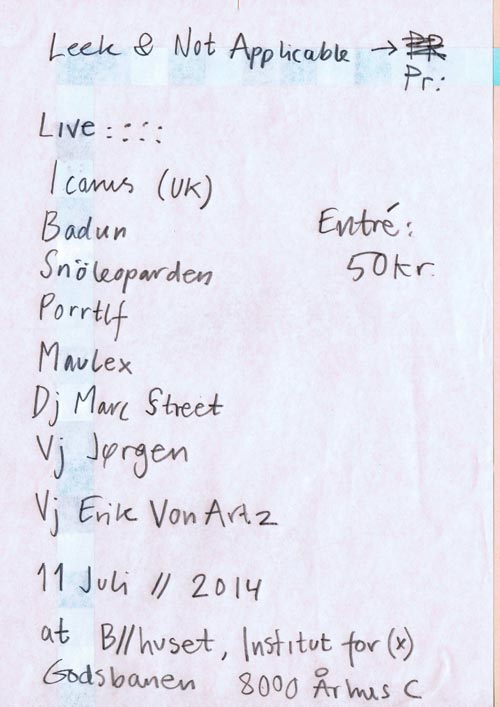 Leek & Not Applicable →
Pr:
Live : : : :
Icarus (UK)
Badun
Entré:
Snöleoparden
50 kr.
Porrtlf
Maulex
Dj Marc Street
Vj Jørgen
Vj Erik Von Artz
11 Juli // 2014
at B//huset, Institut for (x)
Godsbanen 8000 Århus C